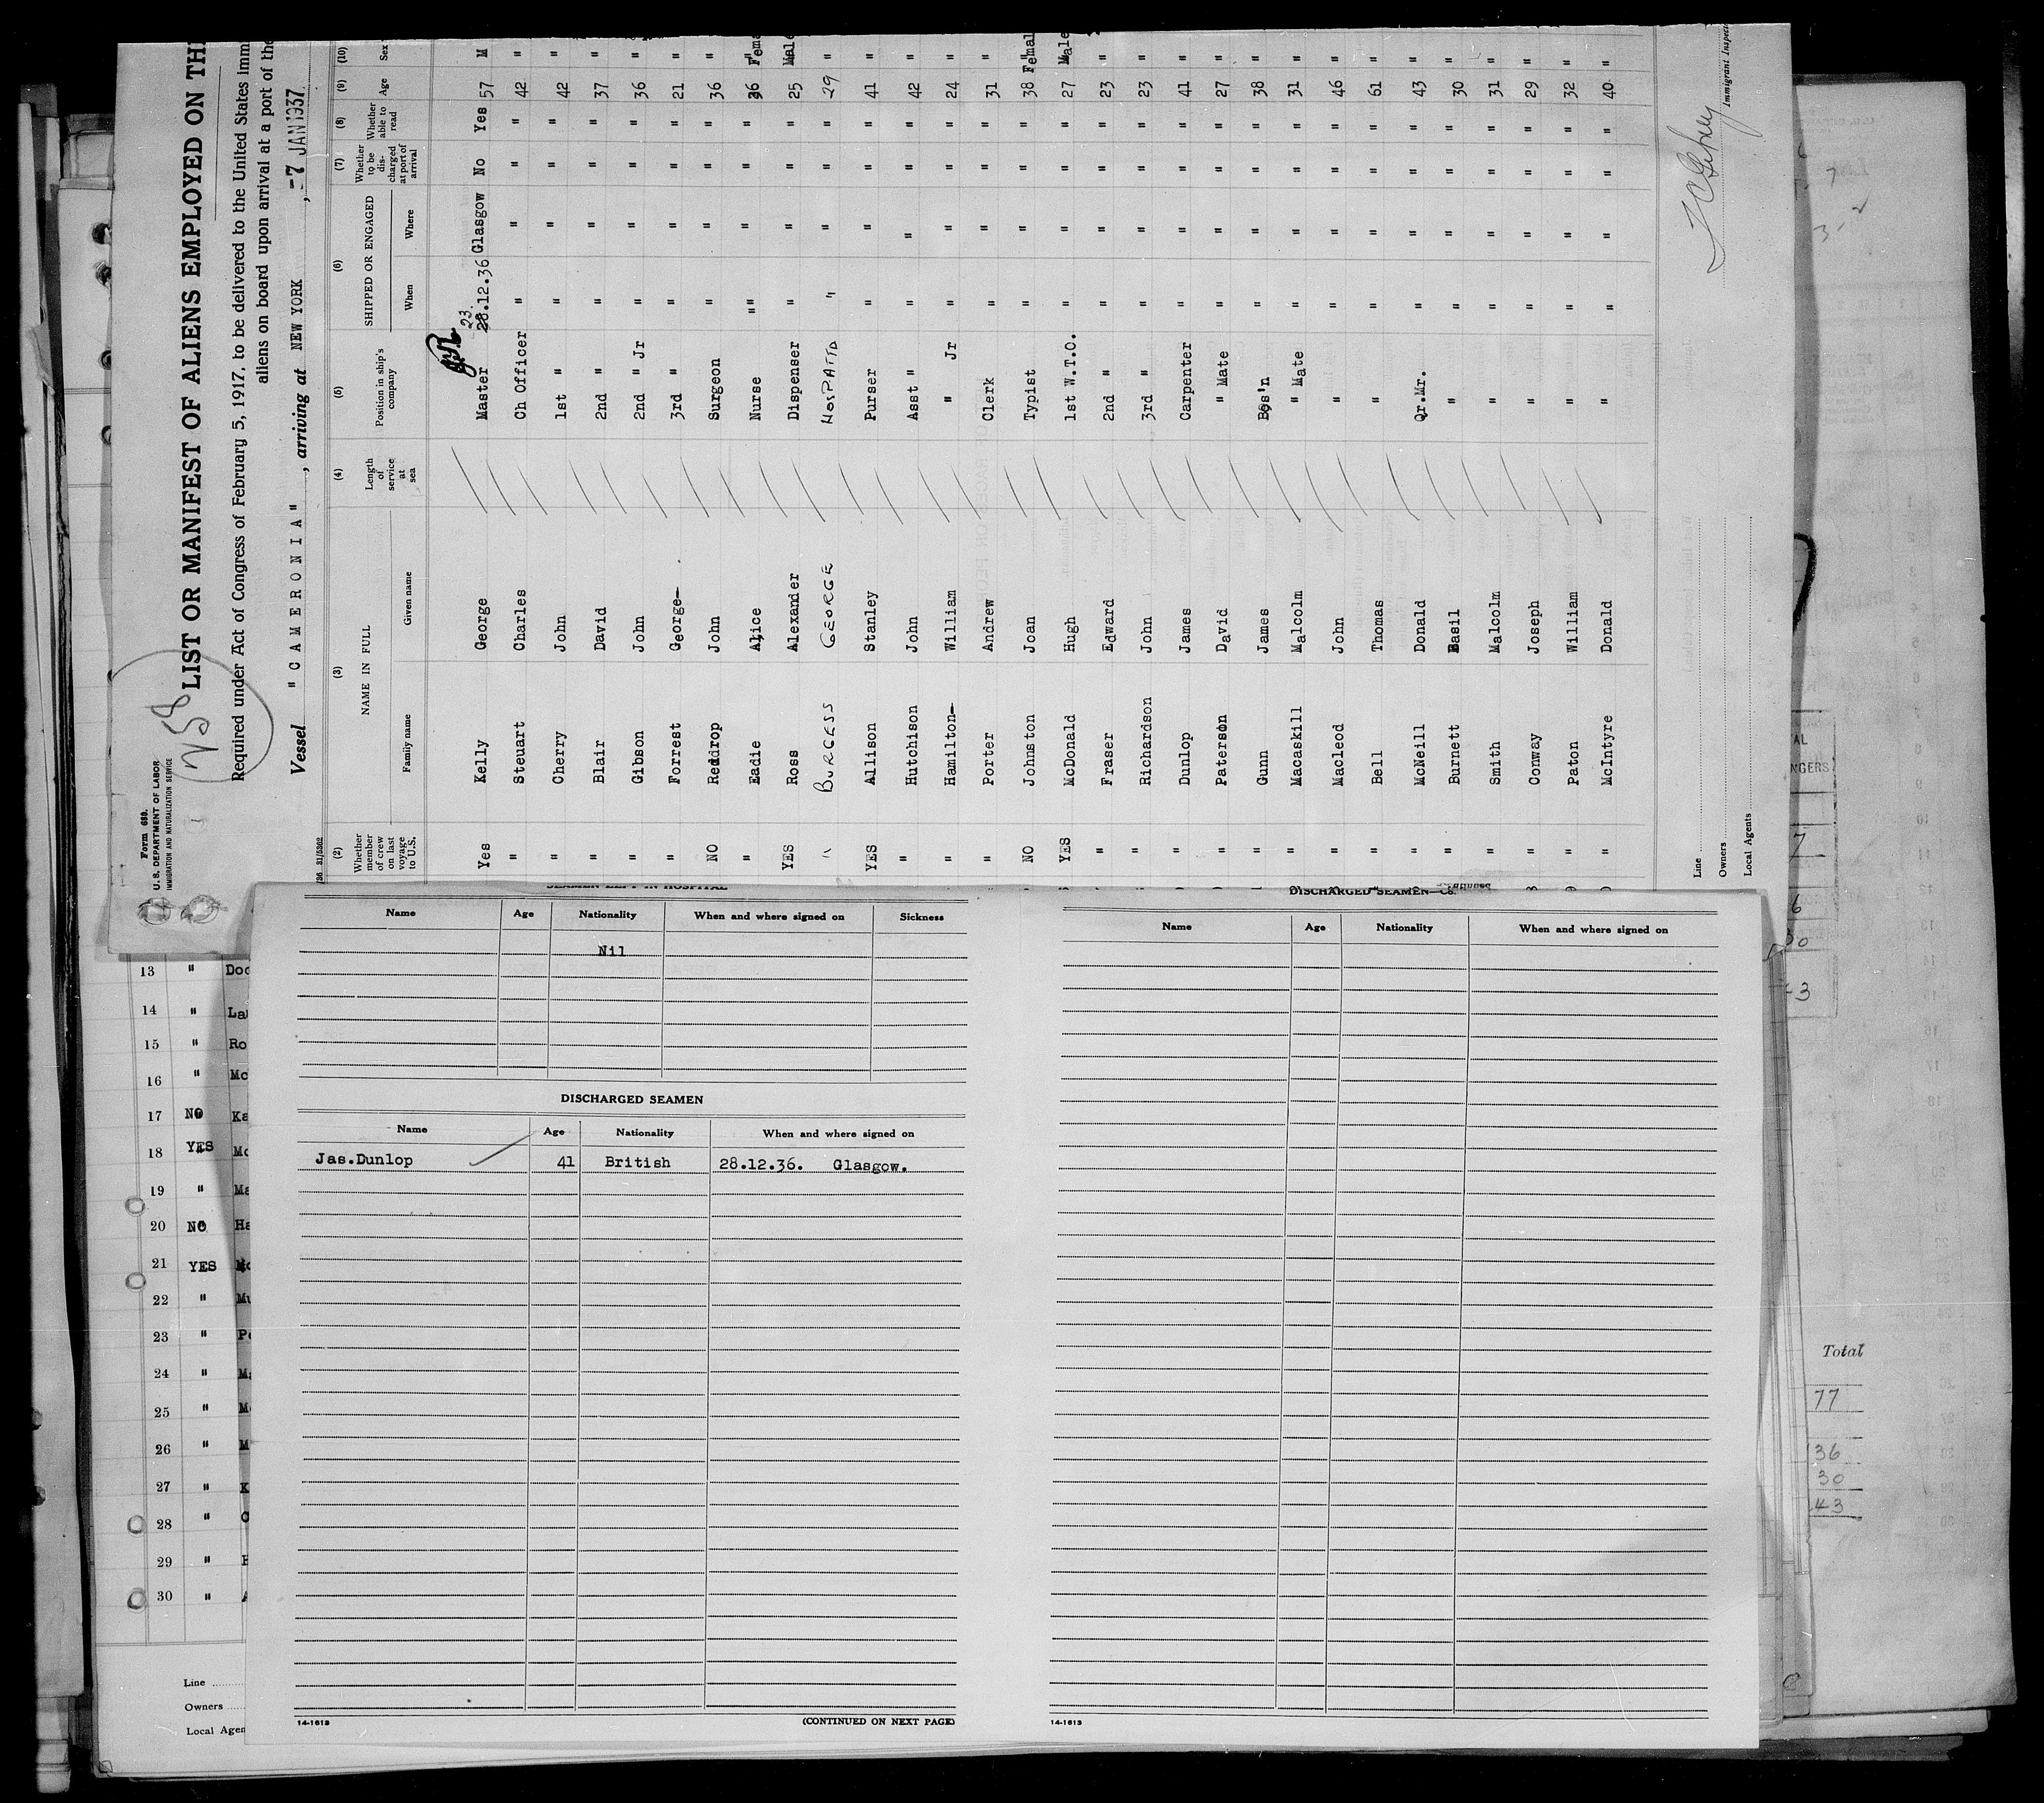 Form 680.
U. S. DEPARTMENT OF LABOR
IMMIGRATION AND NATURALIZATION SERVICE
LIST OR MANIFEST OF ALIENS EMPLOYED ON TH
Required under Act of Congress of February 5, 1917, to be delivered to the United States imm
aliens on board upon arrival at a port of the
Vessel "CAMERONIA", arriving at NEW YORK, -7 JAN 1937
(2) (3) (4) (5) (6) (7) (8) (9) (10)
Whether member of crew on last voyage to U.S. NAME IN FULL Family name Given name Length of service at sea Position in ship's company SHIPPED OR ENGAGED When Where Whether to be discharged at port of arrival Whether able to read Age Sex
Yes Kelly George Master 23. 28.12.36 Glasgow No Yes 57 M
" Steuart Charles Ch Officer " " " " 42 "
" Cherry John 1st " " " " " 42 "
" Blair David 2nd " " " " " 37 "
" Gibson John 2nd " Jr " " " " 36 "
" Forrest George 3rd " " " " " 21 "
NO Reddrop John Surgeon " " " " 36 "
" Eadie Alice Nurse " " " " 36 Fema
YES Ross Alexander Dispenser " " " " 25 Male
" BURGESS GEORGE HOSPATTD " " " " 29 "
YES Allison Stanley Purser " " " " 41 "
" Hutchison John Asst " " " " " 42 "
" Hamilton William " Jr " " " " 24 "
" Porter Andrew Clerk " " " " 31 "
NO Johnston Joan Typist " " " " 38 Femal
YES McDonald Hugh 1st W.T.O. " " " " 27 Male
" Fraser Edward 2nd " " " " " 23 "
" Richardson John 3rd " " " " " 23 "
" Dunlop James Carpenter " " " " 41 "
" Paterson David " Mate " " " " 27 "
" Gunn James Bos'n " " " " 38 "
" Macaskill Malcolm " Mate " " " " 31 "
" Macleod John " " " " " 46 "
" Bell Thomas " " " " " 61 "
" McNeill Donald Qr.Mr. " " " " 43 "
" Burnett Basil " " " " " 30 "
" Smith Malcolm " " " " " 31 "
" Conway Joseph " " " " " 29 "
" Paton William " " " " " 32 "
" McIntyre Donald " " " " " 40 "
Immigrant Inspec
Line
Owners
Local Agents
SEAMEN LEFT IN HOSPITAL
Name Age Nationality When and where signed on Sickness
Nil
DISCHARGED SEAMEN
Name Age Nationality When and where signed on
Jas.Dunlop 41 British 28.12.36. Glasgow.
14-1613 (CONTINUED ON NEXT PAGE)
DISCHARGED SEAMEN—
Name Age Nationality When and where signed on
14-1613
13 " Doc
14 " La
15 " Ro
16 " Mc
17 NO Ka
18 YES Mc
19 " Ma
20 NO Ha
21 YES Mc
22 " Mu
23 " Pe
24 " Ma
25 " Mc
26 " M
27 " K
28 "
29 "
30 " A
Line
Owners
Local Agen
AL
NGERS
7
6
30
43
Total
77
36
30
43